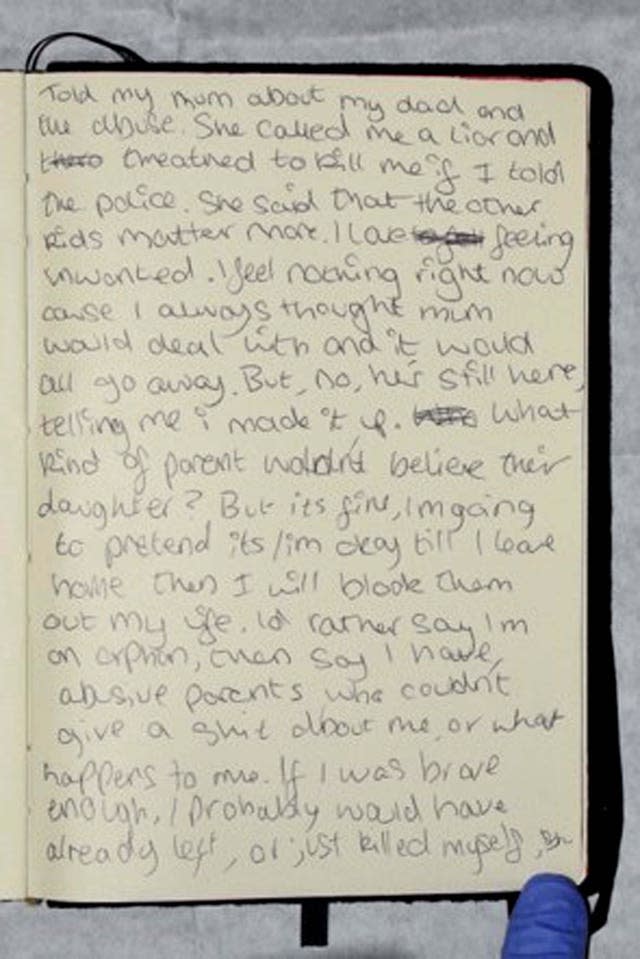 Told my mum about my dad and
the abuse. She called me a liar and
threatned to kill me if I told
the police. She said that the other
kids matter more. I love feeling
unwanted. I feel nothing right now
cause I always thought mum
would deal with and it would
all go away. But, no, he's still here,
telling me i made it up. What
kind of parent wouldn't believe their
daughter? But its fine, I'm going
to pretend its/im okay till I leave
home then I will block them
out my life. I'd rather say I'm
an orphan, then say I have
abusive parents who couldn't
give a shit about me, or what
happens to me. If I was brave
enough, I probably would have
already left, or just killed myself,